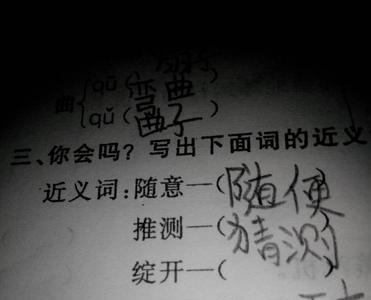 曲{qū(弯曲)
qǔ(曲子)
三、你会吗？写出下面词的近义
近义词:随意—(随便
推测—(猜测)
绽开—(